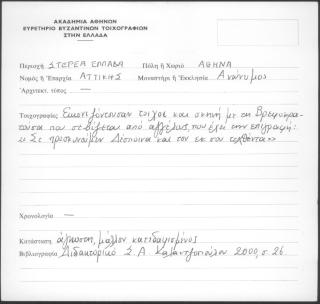 ΑΚΑΔΗΜΙΑ ΑΘΗΝΩΝ
ΕΥΡΕΤΗΡΙΟ ΒΥΖΑΝΤΙΝΩΝ ΤΟΙΧΟΓΡΑΦΙΩΝ
ΣΤΗΝ ΕΛΛΑΔΑ
Περιοχή ΣΤΕΡΕΑ ΕΛΛΑΔΑ Πόλη ή Χωριό ΑΘΗΝΑ
Νομός ή Ἐπαρχία ΑΤΤΙΚΗΣ Μοναστήρι ή Ἐκκλησία Ανώνυμος
Ἀρχιτεκτ. τύπος —
Τοιχογραφίες Εικονιζόντουσαν τοίχος και σκηνή με τη Βρεφοκρα-
τουσα που σεβίζεται από αγγέλους που έχει την επιγραφή:
«Σε προσκυνούμεν Δέσποινα και τον εκ σου τεχθέντα»
Χρονολογία —
Κατάσταση άγνωστη, μάλλον κατεδαφισμένος
Βιβλιογραφία Διδακτορικό Σ.Α Καλαντζοπούλου 2000, σ. 26.